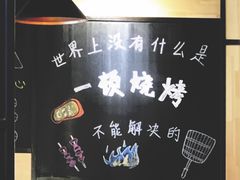 世界上没有什么是
一顿烧烤
不能解决的